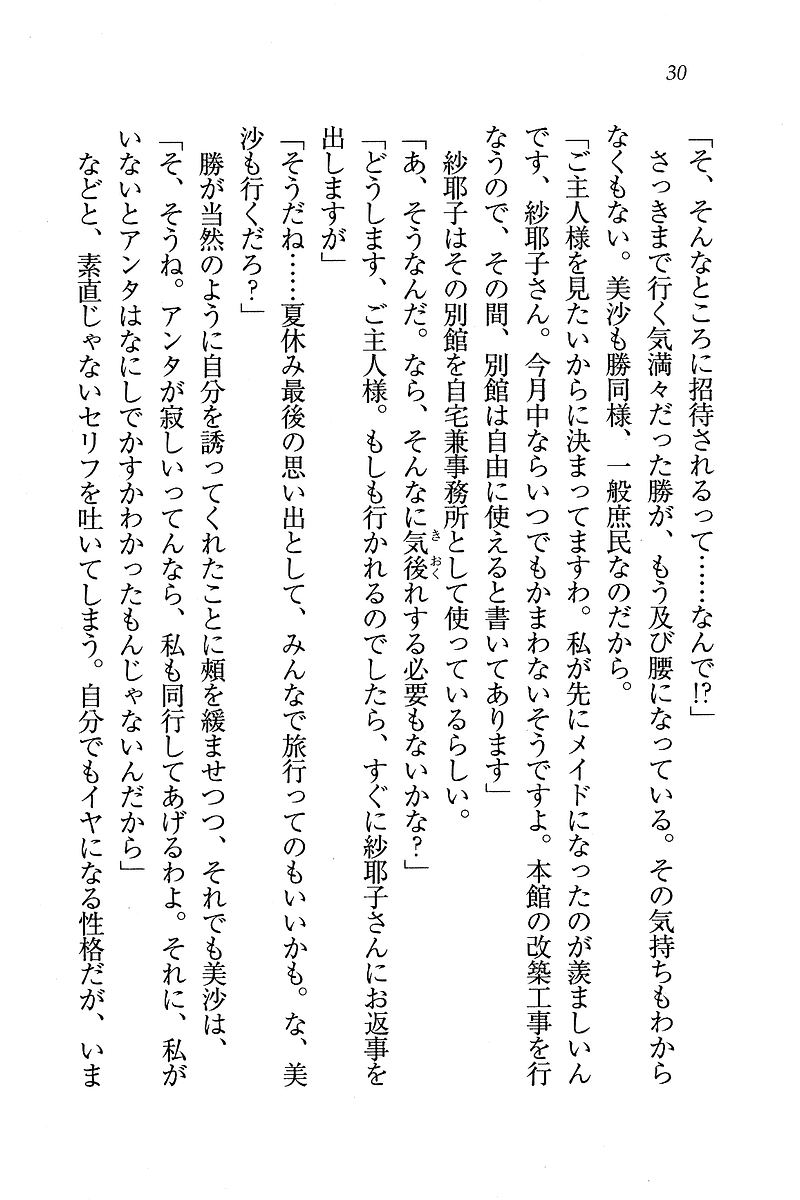 30
「そ、そんなところに招待されるって……なんで!?」
さっきまで行く気満々だった勝が、もう及び腰になっている。その気持ちもわから
なくもない。美沙も勝同様、一般庶民なのだから。
「ご主人様を見たいからに決まってますわ。私が先にメイドになったのが羨ましいん
です、紗耶子さん。今月中ならいつでもかまわないそうですよ。本館の改築工事を行
なうので、その間、別館は自由に使えると書いてあります」
紗耶子はその別館を自宅兼事務所として使っているらしい。
「あ、そうなんだ。なら、そんなに気後れする必要もないかな?」
「どうします、ご主人様。もしも行かれるのでしたら、すぐに紗耶子さんにお返事を
出しますが」
「そうだね……夏休み最後の思い出として、みんなで旅行ってのもいいかも。な、美
沙も行くだろ?」
勝が当然のように自分を誘ってくれたことに頰を緩ませつつ、それでも美沙は、
「そ、そうね。アンタが寂しいってんなら、私も同行してあげるわよ。それに、私が
いないとアンタはなにしでかすかわかったもんじゃないんだから」
などと、素直じゃないセリフを吐いてしまう。自分でもイヤになる性格だが、いま